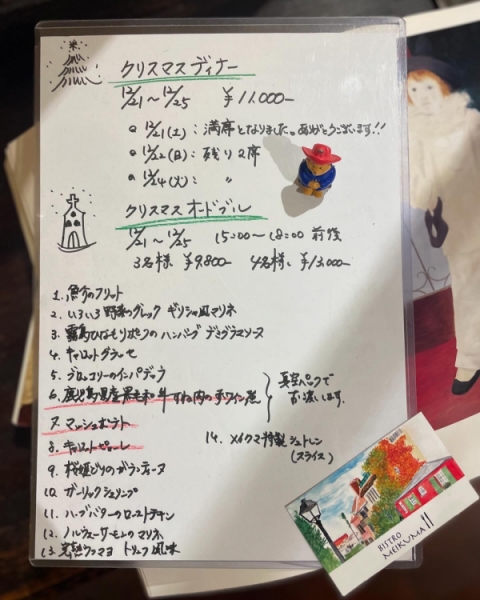 クリスマスディナー
12/21〜12/25 ¥11.000-
12/21(土):満席となりました。ありがとうございます!!
12/22(日):残り2席
12/24(火): 〃
クリスマスオードブル
12/21〜12/25 15:00〜18:00 前後
3名様 ¥9.800- 4名様 ¥13.000-
1. 魚介のフリット
2. いろいろ野菜のグレック ギリシャ風マリネ
3. 霧島ひなもりポークのハンバーグ デミグラスソース
4. キャロットグラッセ
5. ブロッコリーのインパデッラ
6. 鹿児島県産黒毛和牛すね肉の赤ワイン煮
7. マッシュポテト
8. キャロットピューレ
真空パックでお渡しします。
9. 桜姫どりのガランティーヌ
10. ガーリックシュリンプ
11. ハーブバターのローストチキン
12. ノルウェーサーモンのマリネ
13. 男爵ウフマヨ トリュフ風味
14. メイクマ特製シュトレン
(スライス)
BISTRO
MEIKUMA!!